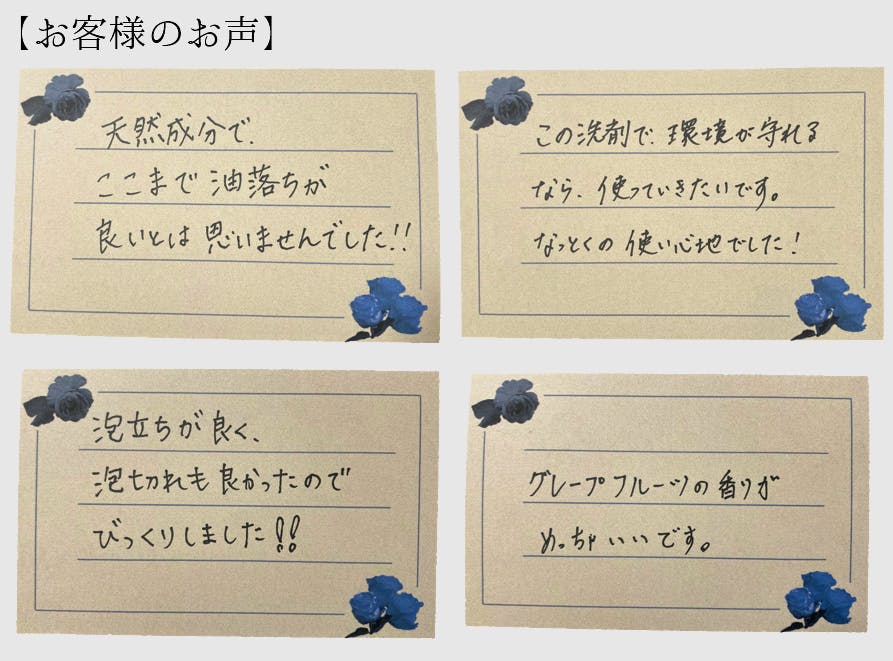 【お客様のお声】
天然成分で、
ここまで油落ちが
良いとは思いませんでした!!
この洗剤で、環境が守れる
なら、使っていきたいです。
なっとくの使い心地でした!
泡立ちが良く、
泡切れも良かったので
びっくりしました!!
グレープフルーツの香りが
めっちゃいいです。